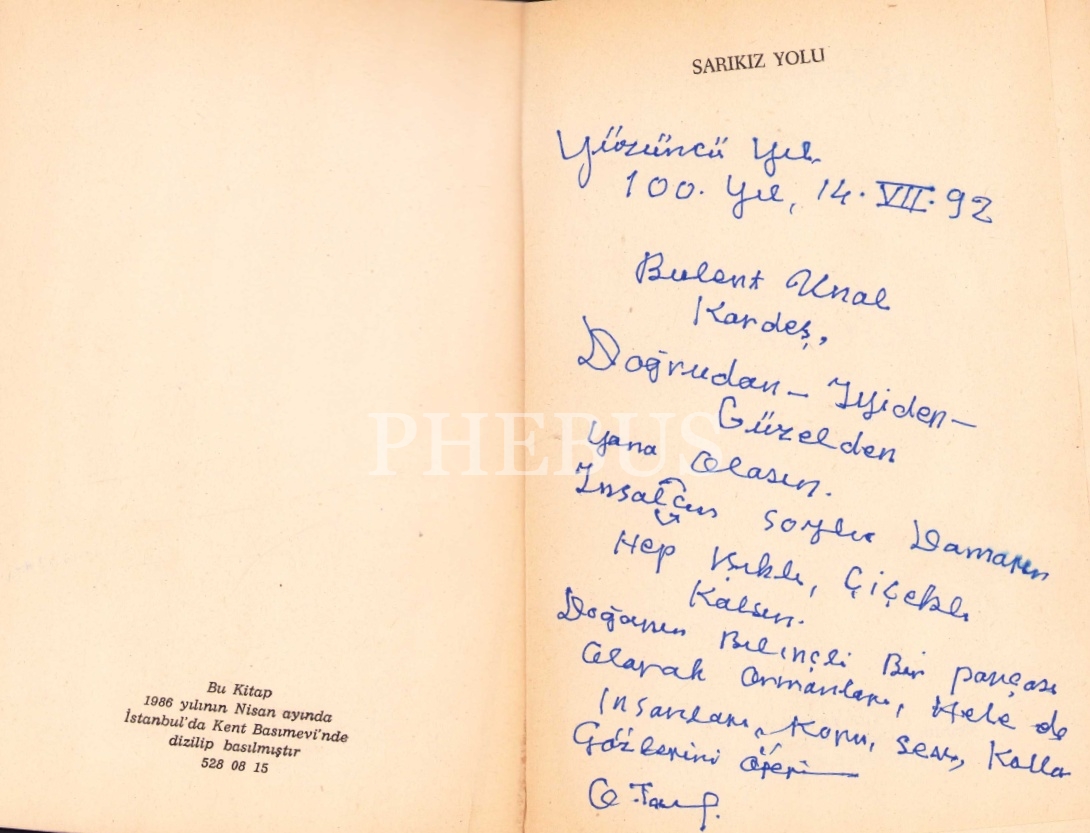 Bu Kitap
1986 yılının Nisan ayında
İstanbul'da Kent Basımevi'nde
dizilip basılmıştır
528 08 15
SARIKIZ YOLU
Yüzüncü Yıl,
100. Yıl, 14. VII. 92
Bülent Ünal
Kardeş,
Doğrudan - İyiden -
Güzelden
yana Olasın.
İnsalcıl soylu Damarın
Hep Işıklı, Çiçekli
Kalsın.
Doğanın Bilinçli Bir parçası
Olarak Ormanları, Hele de
İnsanları, Koru, Sev, Kolla
Gözlerini öperim
PHEBUS